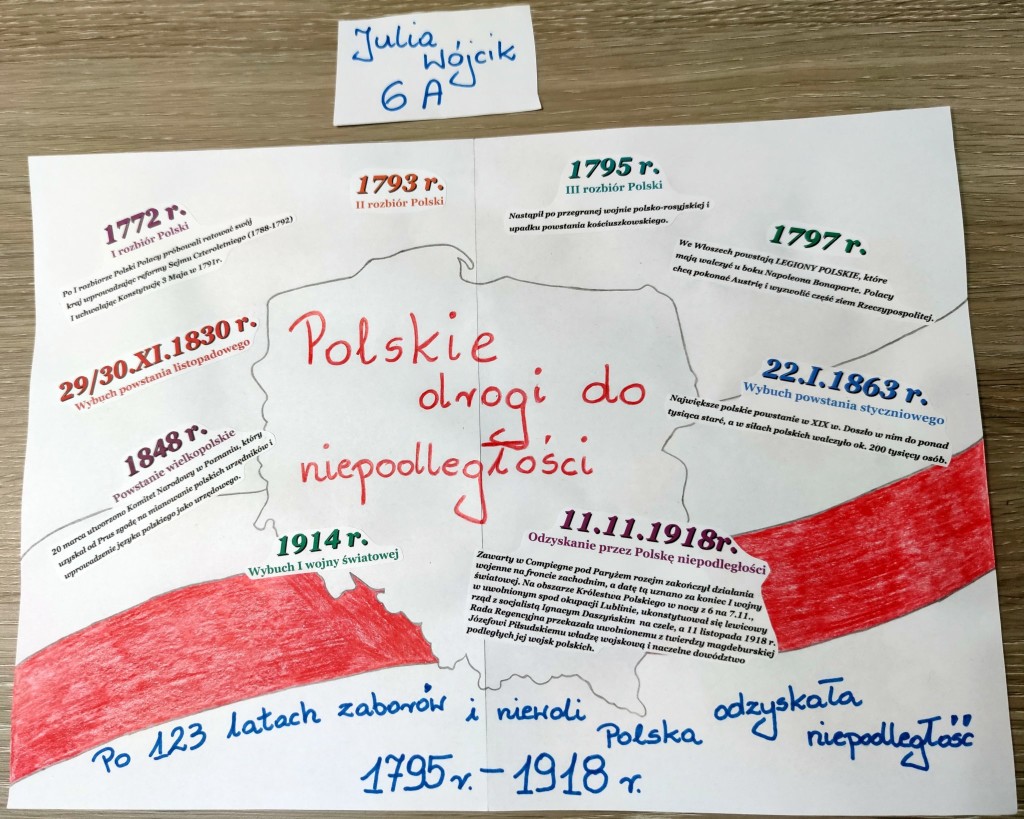 Julia
Wójcik
6 A
1772 r.
I rozbiór Polski
Po I rozbiorze Polski Polacy próbowali ratować swój
kraj wprowadzając reformy Sejmu Czteroletniego (1788-1792)
I uchwalając Konstytucję 3 Maja w 1791r.
1793 r.
II rozbiór Polski
1795 r.
III rozbiór Polski
Nastąpił po przegranej wojnie polsko-rosyjskiej i
upadku powstania kościuszkowskiego.
1797 r.
We Włoszech powstają LEGIONY POLSKIE, które
mają walczyć u boku Napoleona Bonaparte. Polacy
chcą pokonać Austrię i wyzwolić część ziem Rzeczypospolitej.
29/30.XI.1830 r.
Wybuch powstania listopadowego
Polskie
drogi do
niepodległości
22.I.1863 r.
Wybuch powstania styczniowego
Największe polskie powstanie w XIX w. Doszło w nim do ponad
tysiąca starć, a w siłach polskich walczyło ok. 200 tysięcy osób.
1848 r.
Powstanie wielkopolskie
20 marca utworzono Komitet Narodowy w Poznaniu, który
uzyskał od Prus zgodę na mianowanie polskich urzędników i
wprowadzenie języka polskiego jako urzędowego.
1914 r.
Wybuch I wojny światowej
11.11.1918r.
Odzyskanie przez Polskę niepodległości
Zawarty w Compiegne pod Paryżem rozejm zakończył działania
wojenne na froncie zachodnim, a datę tą uznano za koniec I wojny
światowej. Na obszarze Królestwa Polskiego w nocy z 6 na 7.11.,
w uwolnionym spod okupacji Lublinie, ukonstytuował się lewicowy
rząd z socjalistą Ignacym Daszyńskim na czele, a 11 listopada 1918 r.
Rada Regencyjna przekazała uwolnionemu z twierdzy magdeburskiej
Józefowi Piłsudskiemu władzę wojskową i naczelne dowództwo
podległych jej wojsk polskich.
Po 123 latach zaborów i niewoli Polska odzyskała niepodległość
1795 r. - 1918 r.